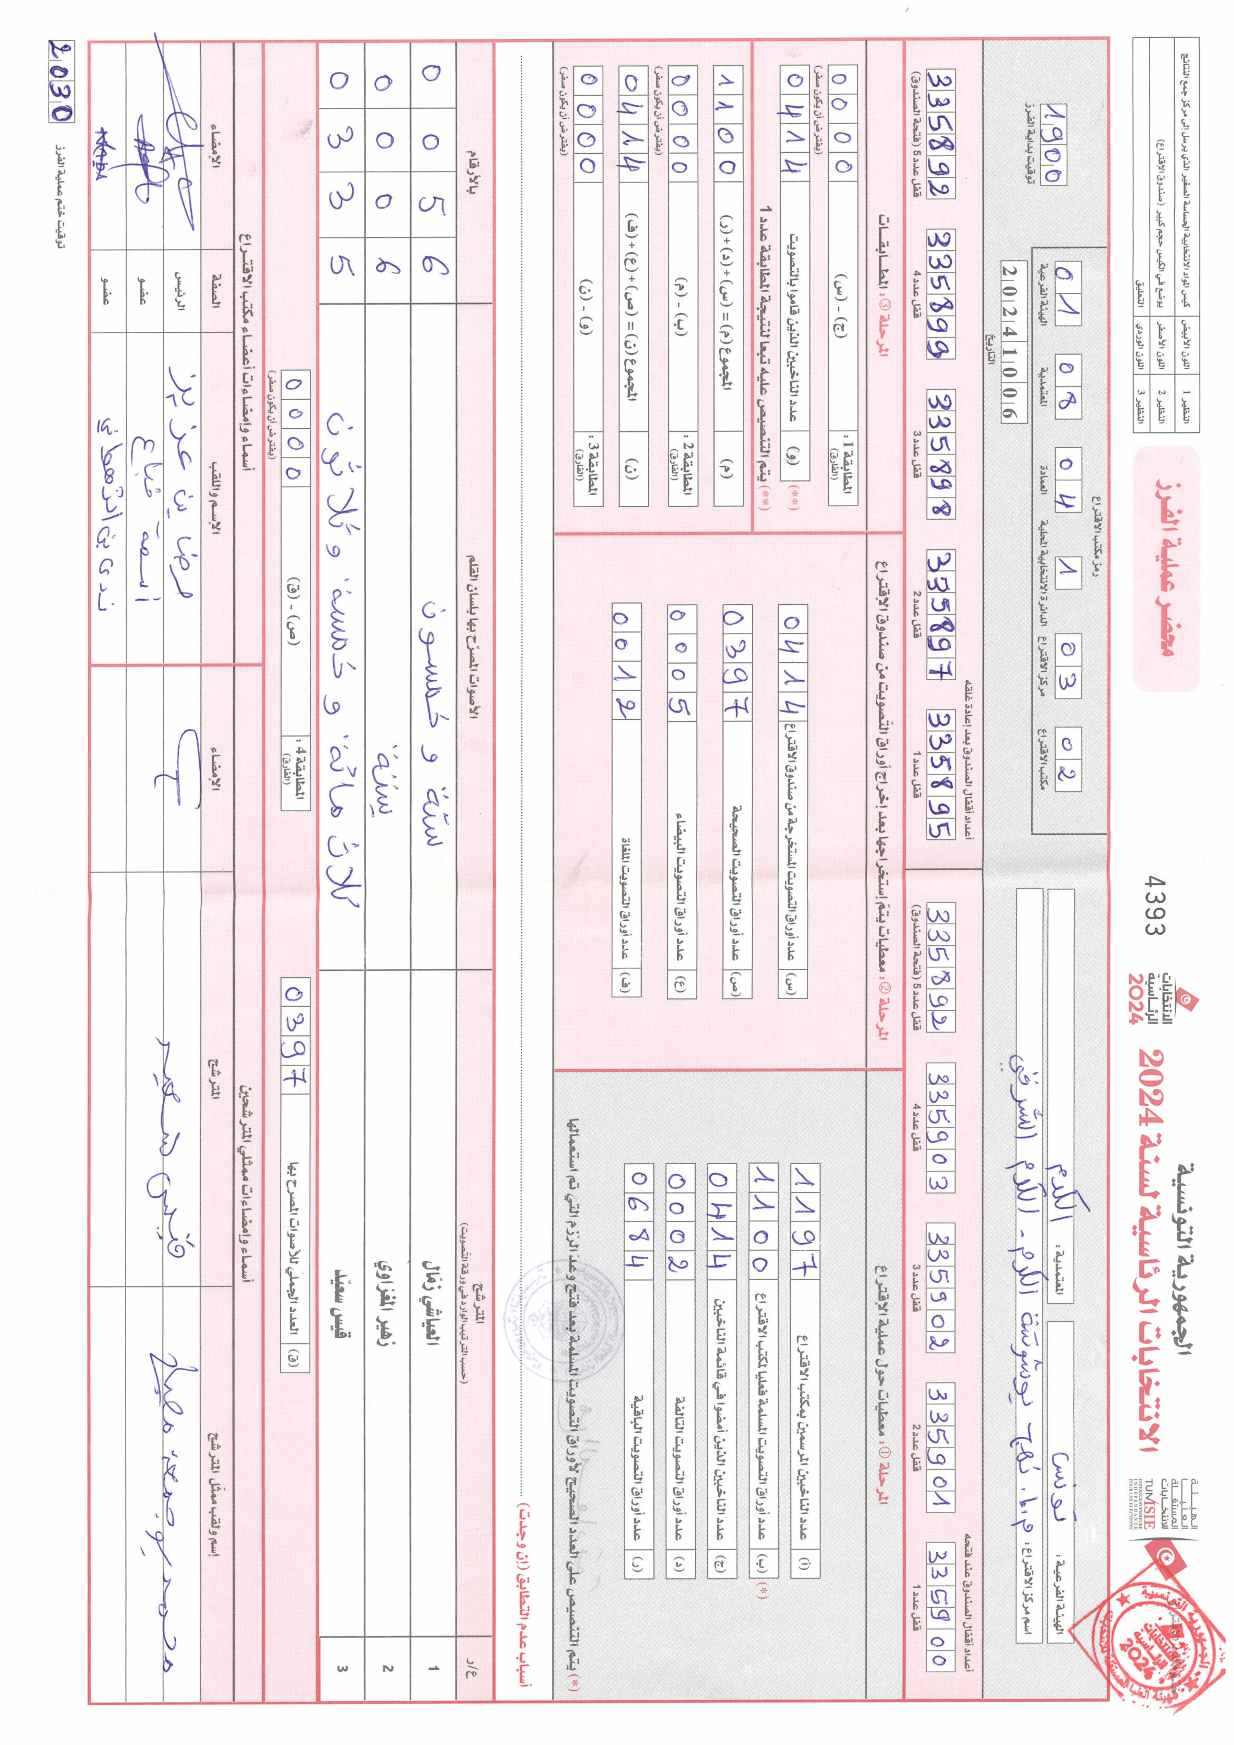 الجمهورية التونسية
الانتخابات الرئاسية لسنة 2024
الانتخابات الرئاسية 2024
4393
محضر عملية الفرز
النظير 1 اللون الأبيض كيس المواد الانتخابية الحساسة الصغير الذي يرسل إلى مركز جمع النتائج
النظير 2 اللون الأصفر يوضع في الكيس حجم كبير (صندوق الاقتراع)
النظير 3 اللون الوردي التعليق
الهيئة الفرعية : تونس
المعتمدية : الكرم
اسم مركز الاقتراع : م.إ. نهج بوشوشة الكرم - الكرم الشرقي
رمز مكتب الاقتراع
02 مكتب الاقتراع
03 مركز الاقتراع
1 الدائرة الانتخابية المحلية
04 العمادة
08 المعتمدية
01 الهيئة الفرعية
التاريخ
20241006
1900
توقيت بداية الفرز
أعداد أقفال الصندوق عند فتحه
335900 قفل عدد 1
335901 قفل عدد 2
335902 قفل عدد 3
335903 قفل عدد 4
335892 قفل عدد 5 (فتحة الصندوق)
أعداد أقفال الصندوق بعد إعادة غلقه
335895 قفل عدد 1
335897 قفل عدد 2
335898 قفل عدد 3
335899 قفل عدد 4
335892 قفل عدد 5 (فتحة الصندوق)
المرحلة ① : معطيات حول عملية الاقتراع
(أ) عدد الناخبين المرسمين بمكتب الاقتراع 1197
(ب) عدد أوراق التصويت المسلمة فعليا لمكتب الاقتراع 1100 (*)
(ج) عدد الناخبين الذين أمضوا في قائمة الناخبين 0414
(د) عدد أوراق التصويت التالفة 0002
(ر) عدد أوراق التصويت الباقية 0684
(*) يتم التنصيص على العدد الصحيح لأوراق التصويت المسلمة بعد فتح وعد الرزم التي تم استعمالها
المرحلة ② : معطيات يتم إستخراجها بعد إخراج أوراق التصويت من صندوق الإقتراع
(س) عدد أوراق التصويت المستخرجة من صندوق الاقتراع 0414
(ص) عدد أوراق التصويت الصحيحة 0397
(ع) عدد أوراق التصويت البيضاء 0005
(ف) عدد أوراق التصويت الملغاة 0012
المرحلة ③ : المطابقات
المطابقة 1 : (الفارق) (ج) - (س) 0000 (يفترض أن يكون صفر)
(**) (و) عدد الناخبين الذين قاموا بالتصويت 0414
(**) يتم التنصيص عليه تبعا لنتيجة المطابقة عدد 1
(م) المجموع (م) = (س) + (د) + (ر) 1100
المطابقة 2 : (الفارق) (ب) - (م) 0000 (يفترض أن يكون صفر)
(ن) المجموع (ن) = (ص) + (ع) + (ف) 0414
المطابقة 3 : (الفارق) (و) - (ن) 0000 (يفترض أن يكون صفر)
أسباب عدم التطابق (إن وجدت)
ع/ر المترشح (حسب الترتيب الوارد في ورقة التصويت) الأصوات المصرّح بها بلسان القلم بالأرقام
1 العياشي زمّال ستّة و خمسون 0056
2 زهير المغزاوي ستّة 0006
3 قيس سعيّد ثلاث مائة و خمسة و ثلاثون 0335
(ق) العدد الجملي للأصوات المصرح بها 0397
المطابقة 4 : (الفارق) (ص) - (ق) 0000 (يفترض أن يكون صفر)
أسماء وإمضاءات ممثلي المترشحين
إسم ولقب ممثل المترشح المترشح الإمضاء
قيس سعيد
أسماء وإمضاءات أعضاء مكتب الاقتراع
الإسم واللقب الصفة الإمضاء
الرئيس
عضو
عضو
2030
توقيت ختم عملية الفرز